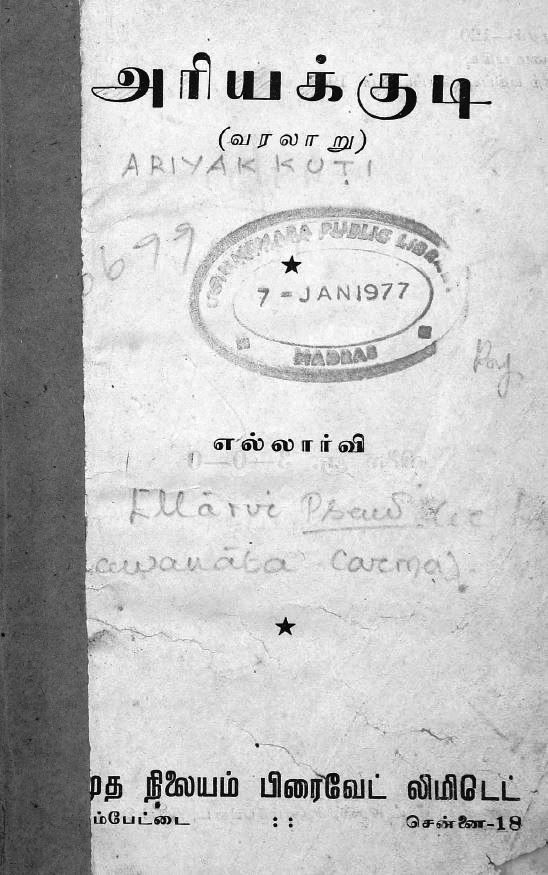 அரியக்குடி
(வரலாறு)
ARIYAKKUṬI
6699
PUBLIC
7 - JAN 1977
MADRAS
எல்லார்வி
Ellārvi
carma)
முத நிலையம் பிரைவேட் லிமிடெட்
ம்பேட்டை :: சென்னை-18